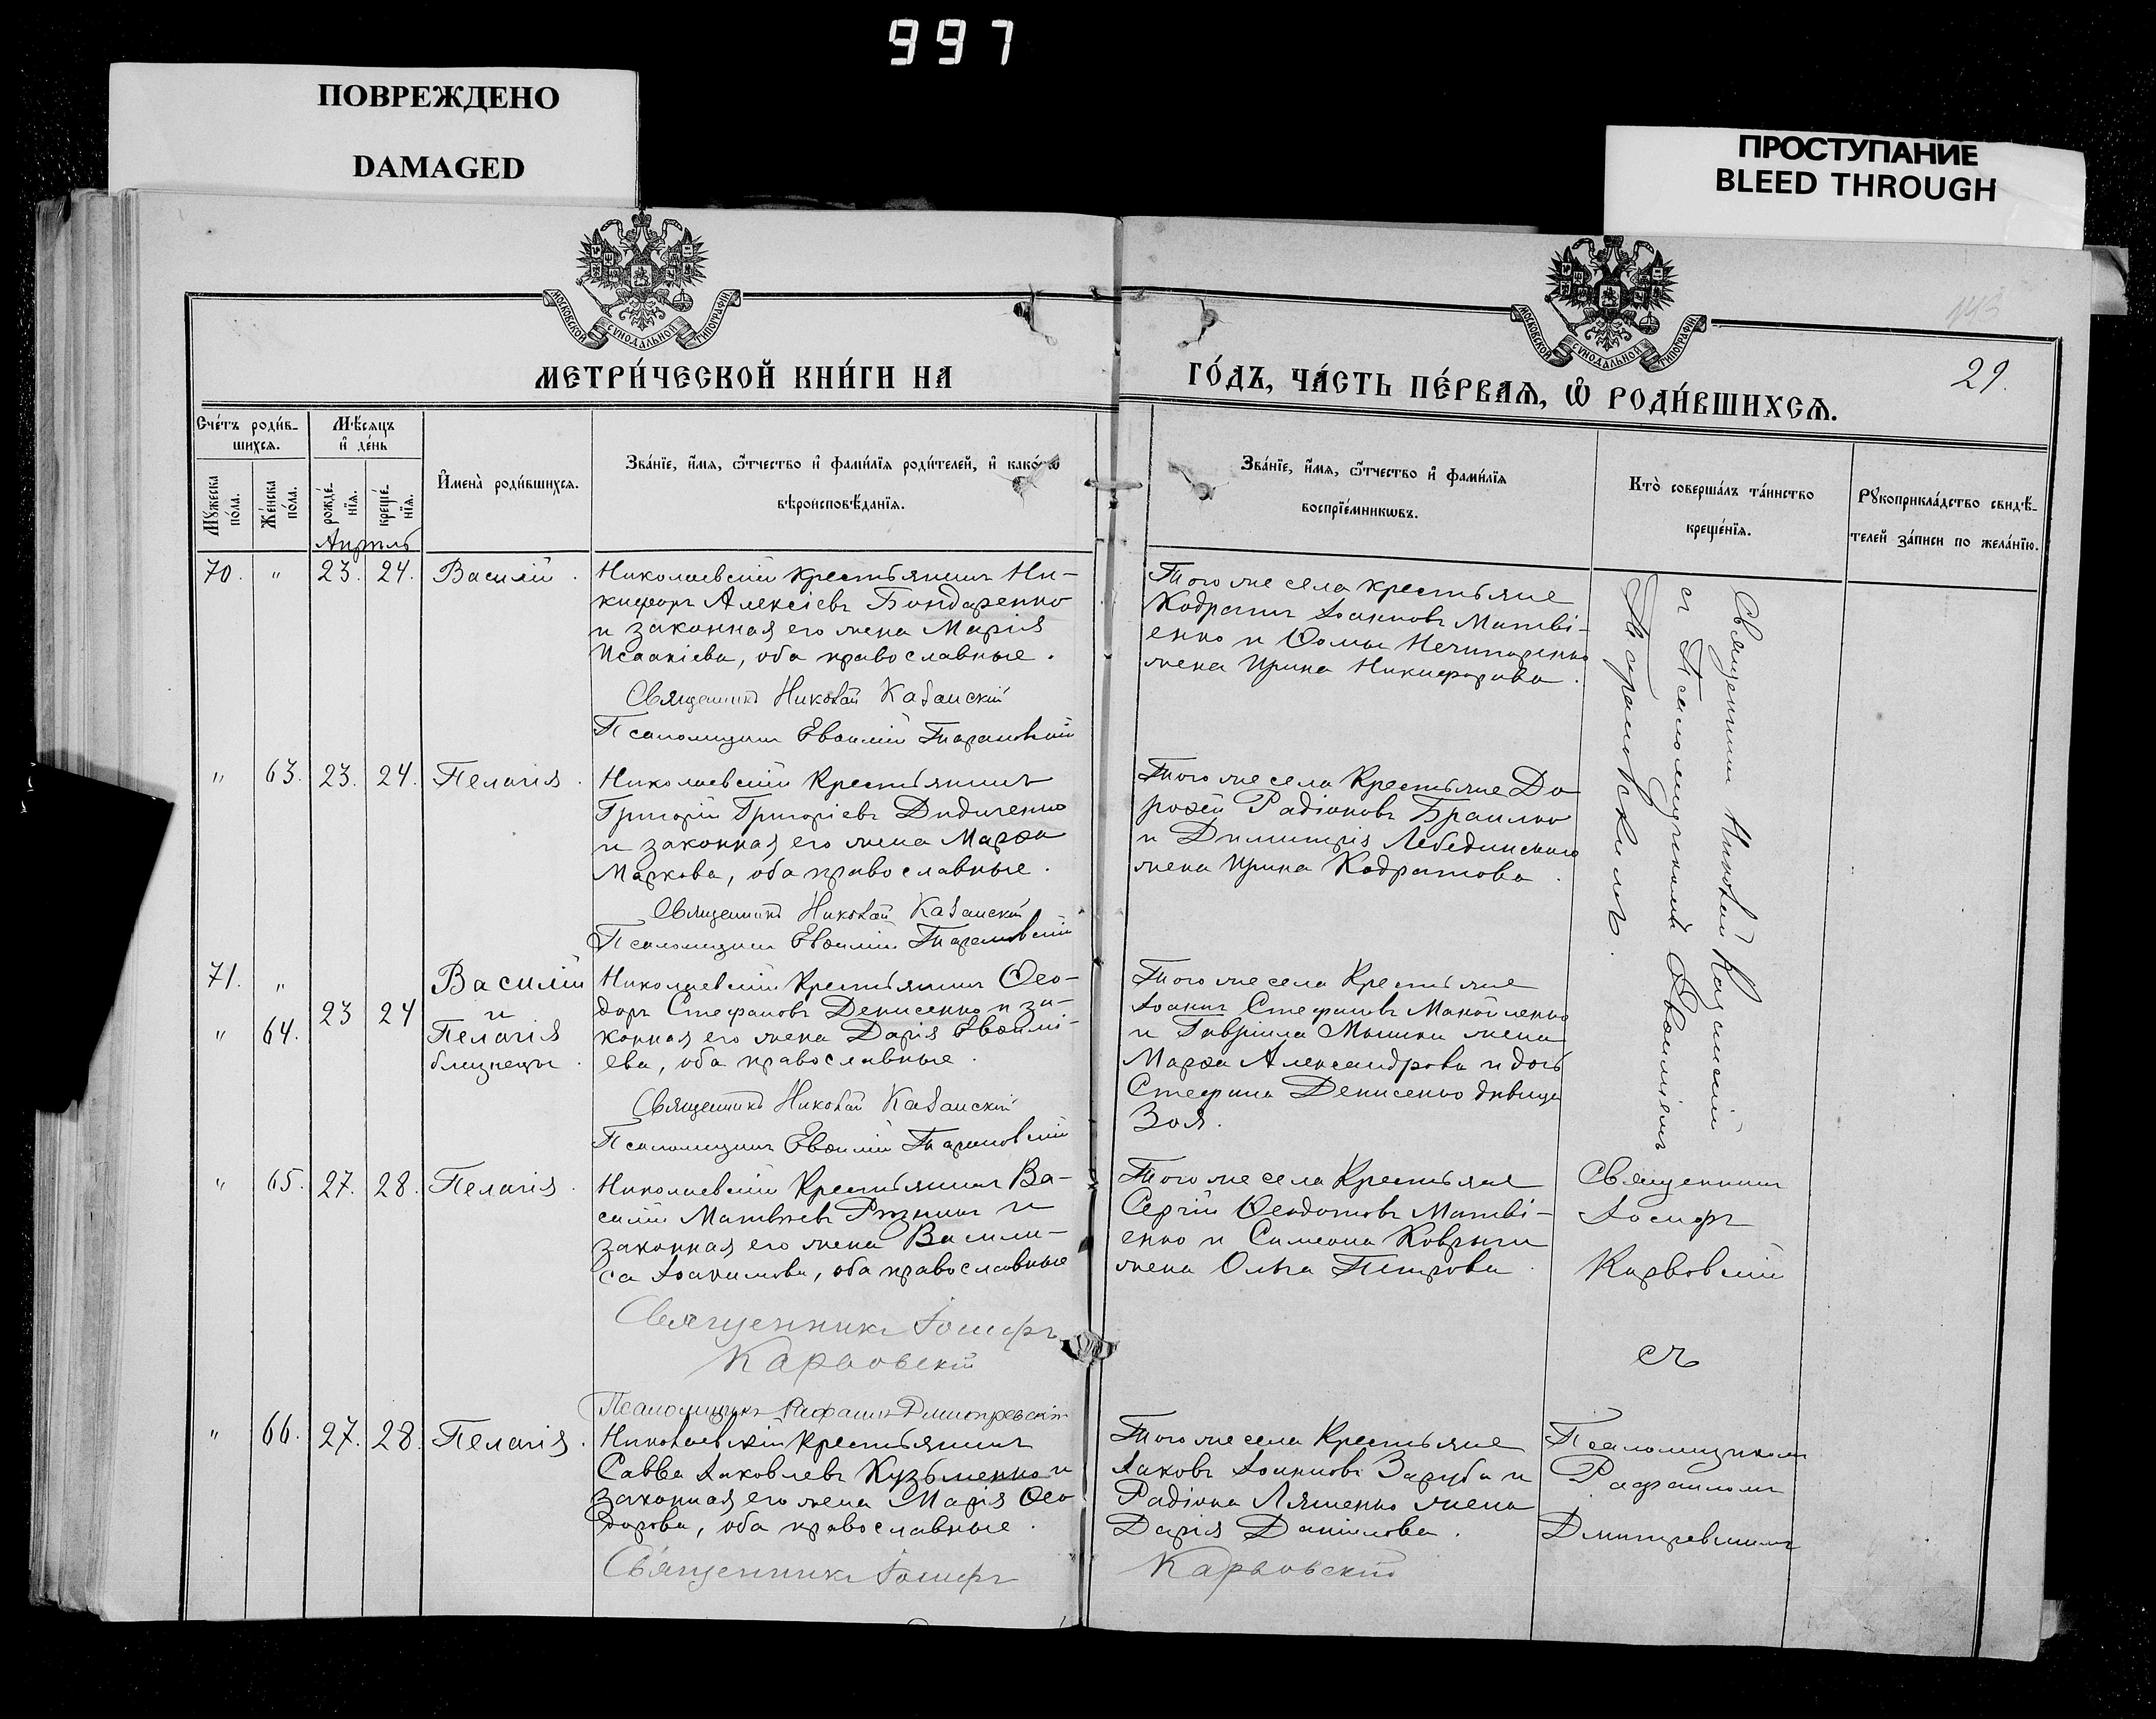 997
ПОВРЕЖДЕНО
DAMAGED
ПРОСТУПАНИЕ
BLEED THROUGH
МОСКОВСКОЙ СѴНОДАЛЬНОЙ ТИПОГРАФІИ
МОСКОВСКОЙ СѴНОДАЛЬНОЙ ТИПОГРАФІИ
29.
МЕТРИ́ЧЕСКОЙ КНИ́ГИ НА
ГО́ДЪ, ЧА́СТЬ ПЕ́РВАЯ, Ѡ РОДИ́ВШИХСЯ.
Сче́тъ роди́в-
шихся.
Мꙋ́жеска по́ла.
Же́нска по́ла.
Мѣ́сяцъ
и де́нь
рожде́-
нія.
креще́-
нія.
Апрѣль
Имена̀ роди́вшихся.
Зва́нїе, и́мя, ѻ́тчество и фами́лїя роди́телей, и како́гѡ
вѣроисповѣ́данїя.
Зва́нїе, и́мя, ѻ́тчество и фами́лїя
воспрїе́мникѡвъ.
Кто̀ соверша́лъ та́инство
креще́нїя.
Рꙋкоприкла́дство свидѣ́-
телей за́писи по жела́нїю.
70. " 23. 24. Василій.
Николаевскій крестьянинъ Ни-
кифоръ Алексіевъ Бондаренко
и законная его жена Марія
Исаакіева, оба православные.
Священникъ Николай Казанскій
Псаломщикъ Евѳимій Тарановскій
Того же села крестьяне
Кодратъ Іоанновъ Матві-
енко и Ѳомы Нечипоренко
жена Ирина Никифорова.
Священникъ Николай Казанскій
съ Псаломщикомъ Евѳиміемъ
Тарановскимъ.
" 63. 23. 24. Пелагія.
Николаевскій Крестьянинъ
Григорій Григоріевъ Дидиченко
и законная его жена Марѳа
Маркова, оба православные.
Священникъ Николай Казанскій
Псаломщикъ Евѳимій Тарановскій
Того же села Крестьяне До
роѳей Радіоновъ Браилко
и Димитрія Лебединскаго
жена Ирина Кодратова.
71. "
" 64.
23 24
Василій
и
Пелагія
близнецы.
Николаевскій Крестьянинъ Ѳео-
доръ Стефановъ Денисенко и за-
конная его жена Дарія Евѳимі-
ева, оба православные.
Священникъ Николай Казанскій
Псаломщикъ Евѳимій Тарановскій
Того же села Крестьяне
Іоаннъ Стефановъ Манойленко
и Гавріила Мышки жена
Марѳа Александрова и дочь
Стефана Денисенко дѣвица
Зоя.
" 65. 27. 28. Пелагія.
Николаевскій Крестьянинъ Ва-
силій Матвѣевъ и
законная его жена Васили-
са Іоакимова, оба православные
Священникъ Іосифъ
Карвовскій
Псаломщикъ Рафаилъ Дмитревскій
Того же села Крестьяне
Сергій Ѳеодотовъ Матві-
енко и Симеона Коврыги
жена Ольга Петрова.
Священникъ
Іосифъ
Карвовскій
съ
Псаломщикомъ
Рафаиломъ
Дмитревскимъ
" 66. 27. 28. Пелагія.
Николаевскій Крестьянинъ
Савва Іаковлевъ Кузьменко и
законная его жена Марія Ѳео
дорова, оба православные.
Священникъ Іосифъ
Того же села Крестьяне
Іаковъ Іоанновъ Заруба и
Радіона Ляшенко жена
Дарія Даніилова.
Карвовскій